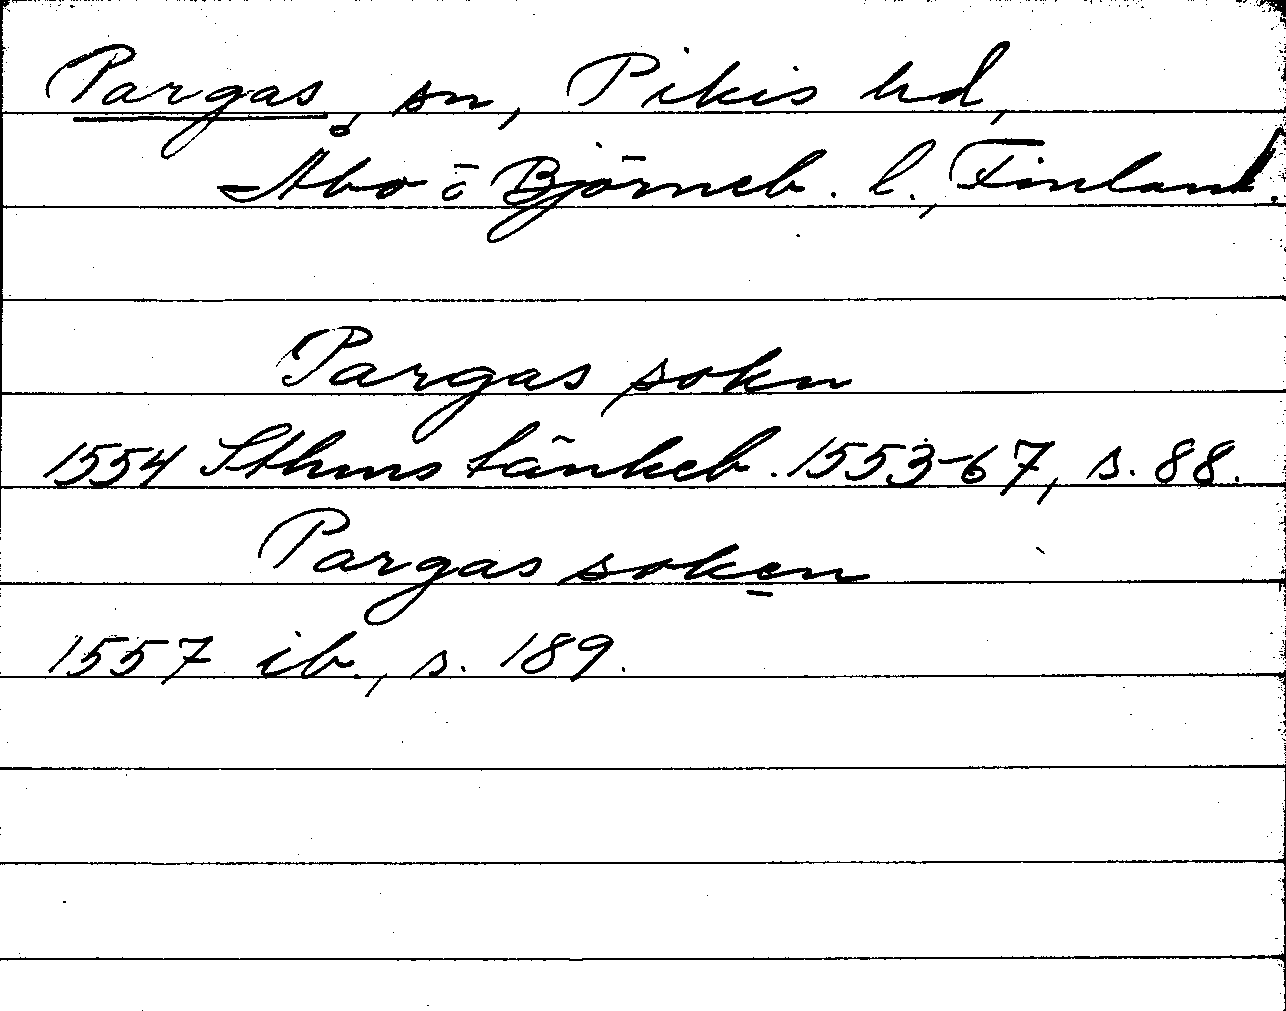 Pargas, sn, Pikis hd,
Åbo o Björneb. l., Finland.
Pargas sokn
1554 Sthms tänkeb. 1553-67, s. 88.
Pargas soken
1557 ib., s. 189.